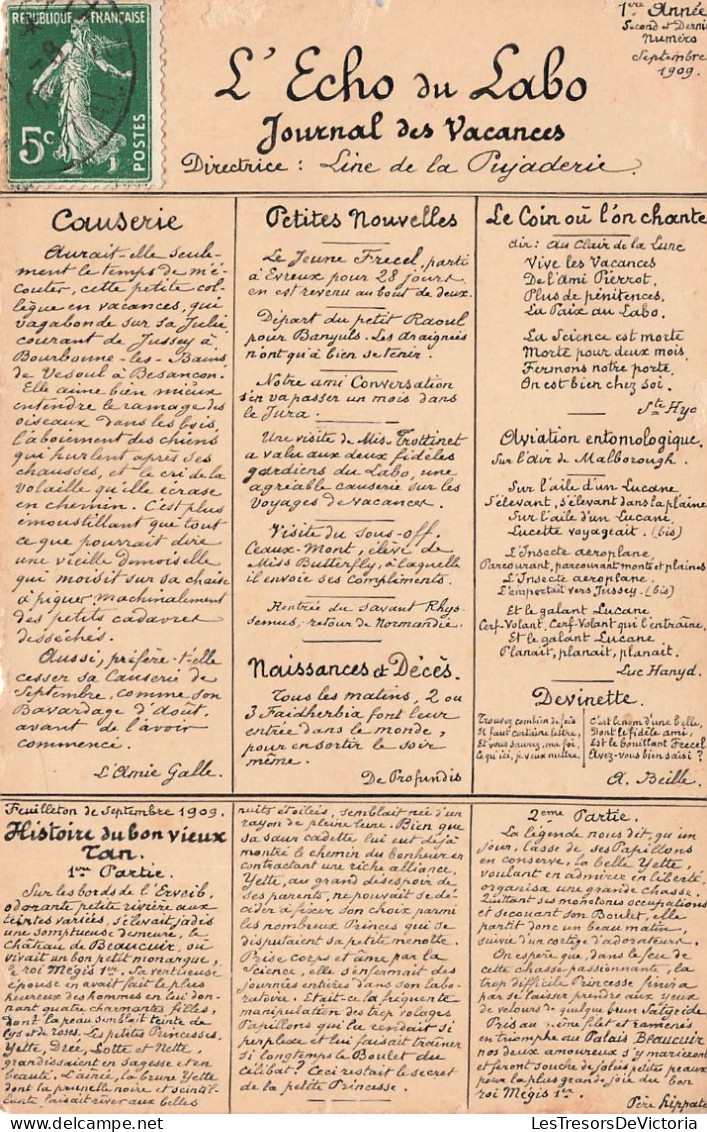 REPUBLIQUE FRANÇAISE
5c
POSTES
1ère Année
Second et Dernier
Numéro
Septembre
1909.
L'Echo du Labo
Journal des Vacances
Directrice : Line de la Pujaderie.
Causerie
Aurait-elle seule-
ment le temps de m'é-
couter, cette petite col-
lègue en vacances, qui
vagabonde sur sa Julie,
courant de Jussey à
Bourbonne-les-Bains
de Vesoul à Besançon.
Elle aime bien mieux
entendre le ramage des
oiseaux dans les bois,
l'aboiement des chiens
qui hurlent après ses
chausses, et le cri de la
volaille qu'elle écrase
en chemin. C'est plus
émoustillant que tout
ce que pourrait dire
une vieille demoiselle
qui moisit sur sa chaise
à piquer machinalement
des petits cadavres
desséchés.
Aussi, préfère-t-elle
cesser sa Causerie de
Septembre, comme son
Bavardage d'Août,
avant de l'avoir
commencé.
L'Amie Galle.
Petites Nouvelles
Le Jeune Frecel, parti
à Evreux pour 28 jours,
en est revenu au bout de deux.
Départ du petit Raoul
pour Banyuls. Les draignées
n'ont qu'à bien se tenir.
Notre ami Conversation
s'en va passer un mois dans
le Jura.
Une visite de Miss Trottinet
a valu aux deux fidèles
gardiens du Labo, une
agréable causerie sur les
Voyages de vacances.
Visite du sous-off.
Ceaux-Mont, élève de
Miss Butterfly, à laquelle
il envoie ses compliments.
Rentrée du savant Rhys-
semus, retour de Normandie.
Naissances et Décès.
Tous les matins, 2 ou
3 Faidherbia font leur
entrée dans le monde,
pour en sortir le soir
même.
De Profundis
Le Coin où l'on chante
Air : Au Clair de la Lune
Vive les Vacances
De l'ami Pierrot.
Plus de pénitences,
La Paix au Labo.
La Science est morte
Morte pour deux mois.
Fermons notre porte
On est bien chez soi.
Ste Hyo
Aviation entomologique.
Sur l'air de Malborough.
Sur l'aile d'un Lucane
S'élevant, s'élevant dans la plaine
Sur l'aile d'un Lucane
Lucette voyageait. (bis)
L'Insecte aéroplane,
Parcourant, parcourant monts et plaines
L'Insecte aéroplane.
L'emportait vers Jussey. (bis)
Et le galant Lucane
Cerf-Volant, Cerf-Volant qui l'entraîne,
Et le galant Lucane
Planait, planait, planait.
Luc Hanyd.
Devinette.
Trouvez combien de fois
Il faut certaine lettre,
Et vous saurez, ma foi,
Ce qu'ici, je veux mettre.
C'est le nom d'une belle,
Dont le fidèle ami,
Est le bouillant Frecel
Avez-vous bien saisi ?
A. Beille.
Feuilleton de Septembre 1909.
Histoire du bon vieux
Tan.
1ère Partie.
Sur les bords de l'Erveib,
odorante petite rivière aux
teintes variées, s'élevait jadis
une somptueuse demeure, le
château de Beaucuir, où
vivait un bon petit monarque,
le roi Mégis 1er. Sa vertueuse
épouse en avait fait le plus
heureux des hommes en lui don-
nant quatre charmantes filles,
dont la peau semblait teinte de
lys et de roses. Les petites Princesses,
Yette, Drée, Lotte et Nette,
grandissaient en sagesse et en
beauté. L'aînée, la brune Yette
dont la prunelle noire et scintil-
lante faisait rêver aux belles
nuits étoilées, semblait née d'un
rayon de pleine lune. Bien que
sa sœur cadette lui eut déjà
montré le chemin du bonheur en
contractant une riche alliance,
Yette, au grand désespoir de
ses parents, ne pouvait se dé-
cider à fixer son choix parmi
les nombreux Princes qui se
disputaient sa petite menotte.
Prise corps et âme par la
Science, elle s'enfermait des
journées entières dans son labo-
ratoire. Était-ce la fréquente
manipulation des trop volages
Papillons qui la rendait si
perplexe et lui faisait traîner
si longtemps le Boulet du
célibat ? Ceci restait le secret
de la petite Princesse.
2ème Partie.
La légende nous dit, qu'un
jour, lasse de ses Papillons
en conserve, la belle Yette,
voulant en admirer en liberté,
organisa une grande chasse.
Quittant ses monotones occupations
et secouant son Boulet, elle
partit donc un beau matin,
suivie d'un cortège d'adorateurs.
On espère que, dans le feu de
cette chasse passionnante, la
trop difficile Princesse finira
par se laisser prendre aux yeux
de velours de quelque brun Satyride
Pris au même filet et ramenés
en triomphe au Palais Beaucuir
nos deux amoureux s'y marièrent
et feront souche de jolis petits peaux
pour la plus grande joie du bon
roi Mégis 1er.
Père Lippate
LesTresorsDeVictoria